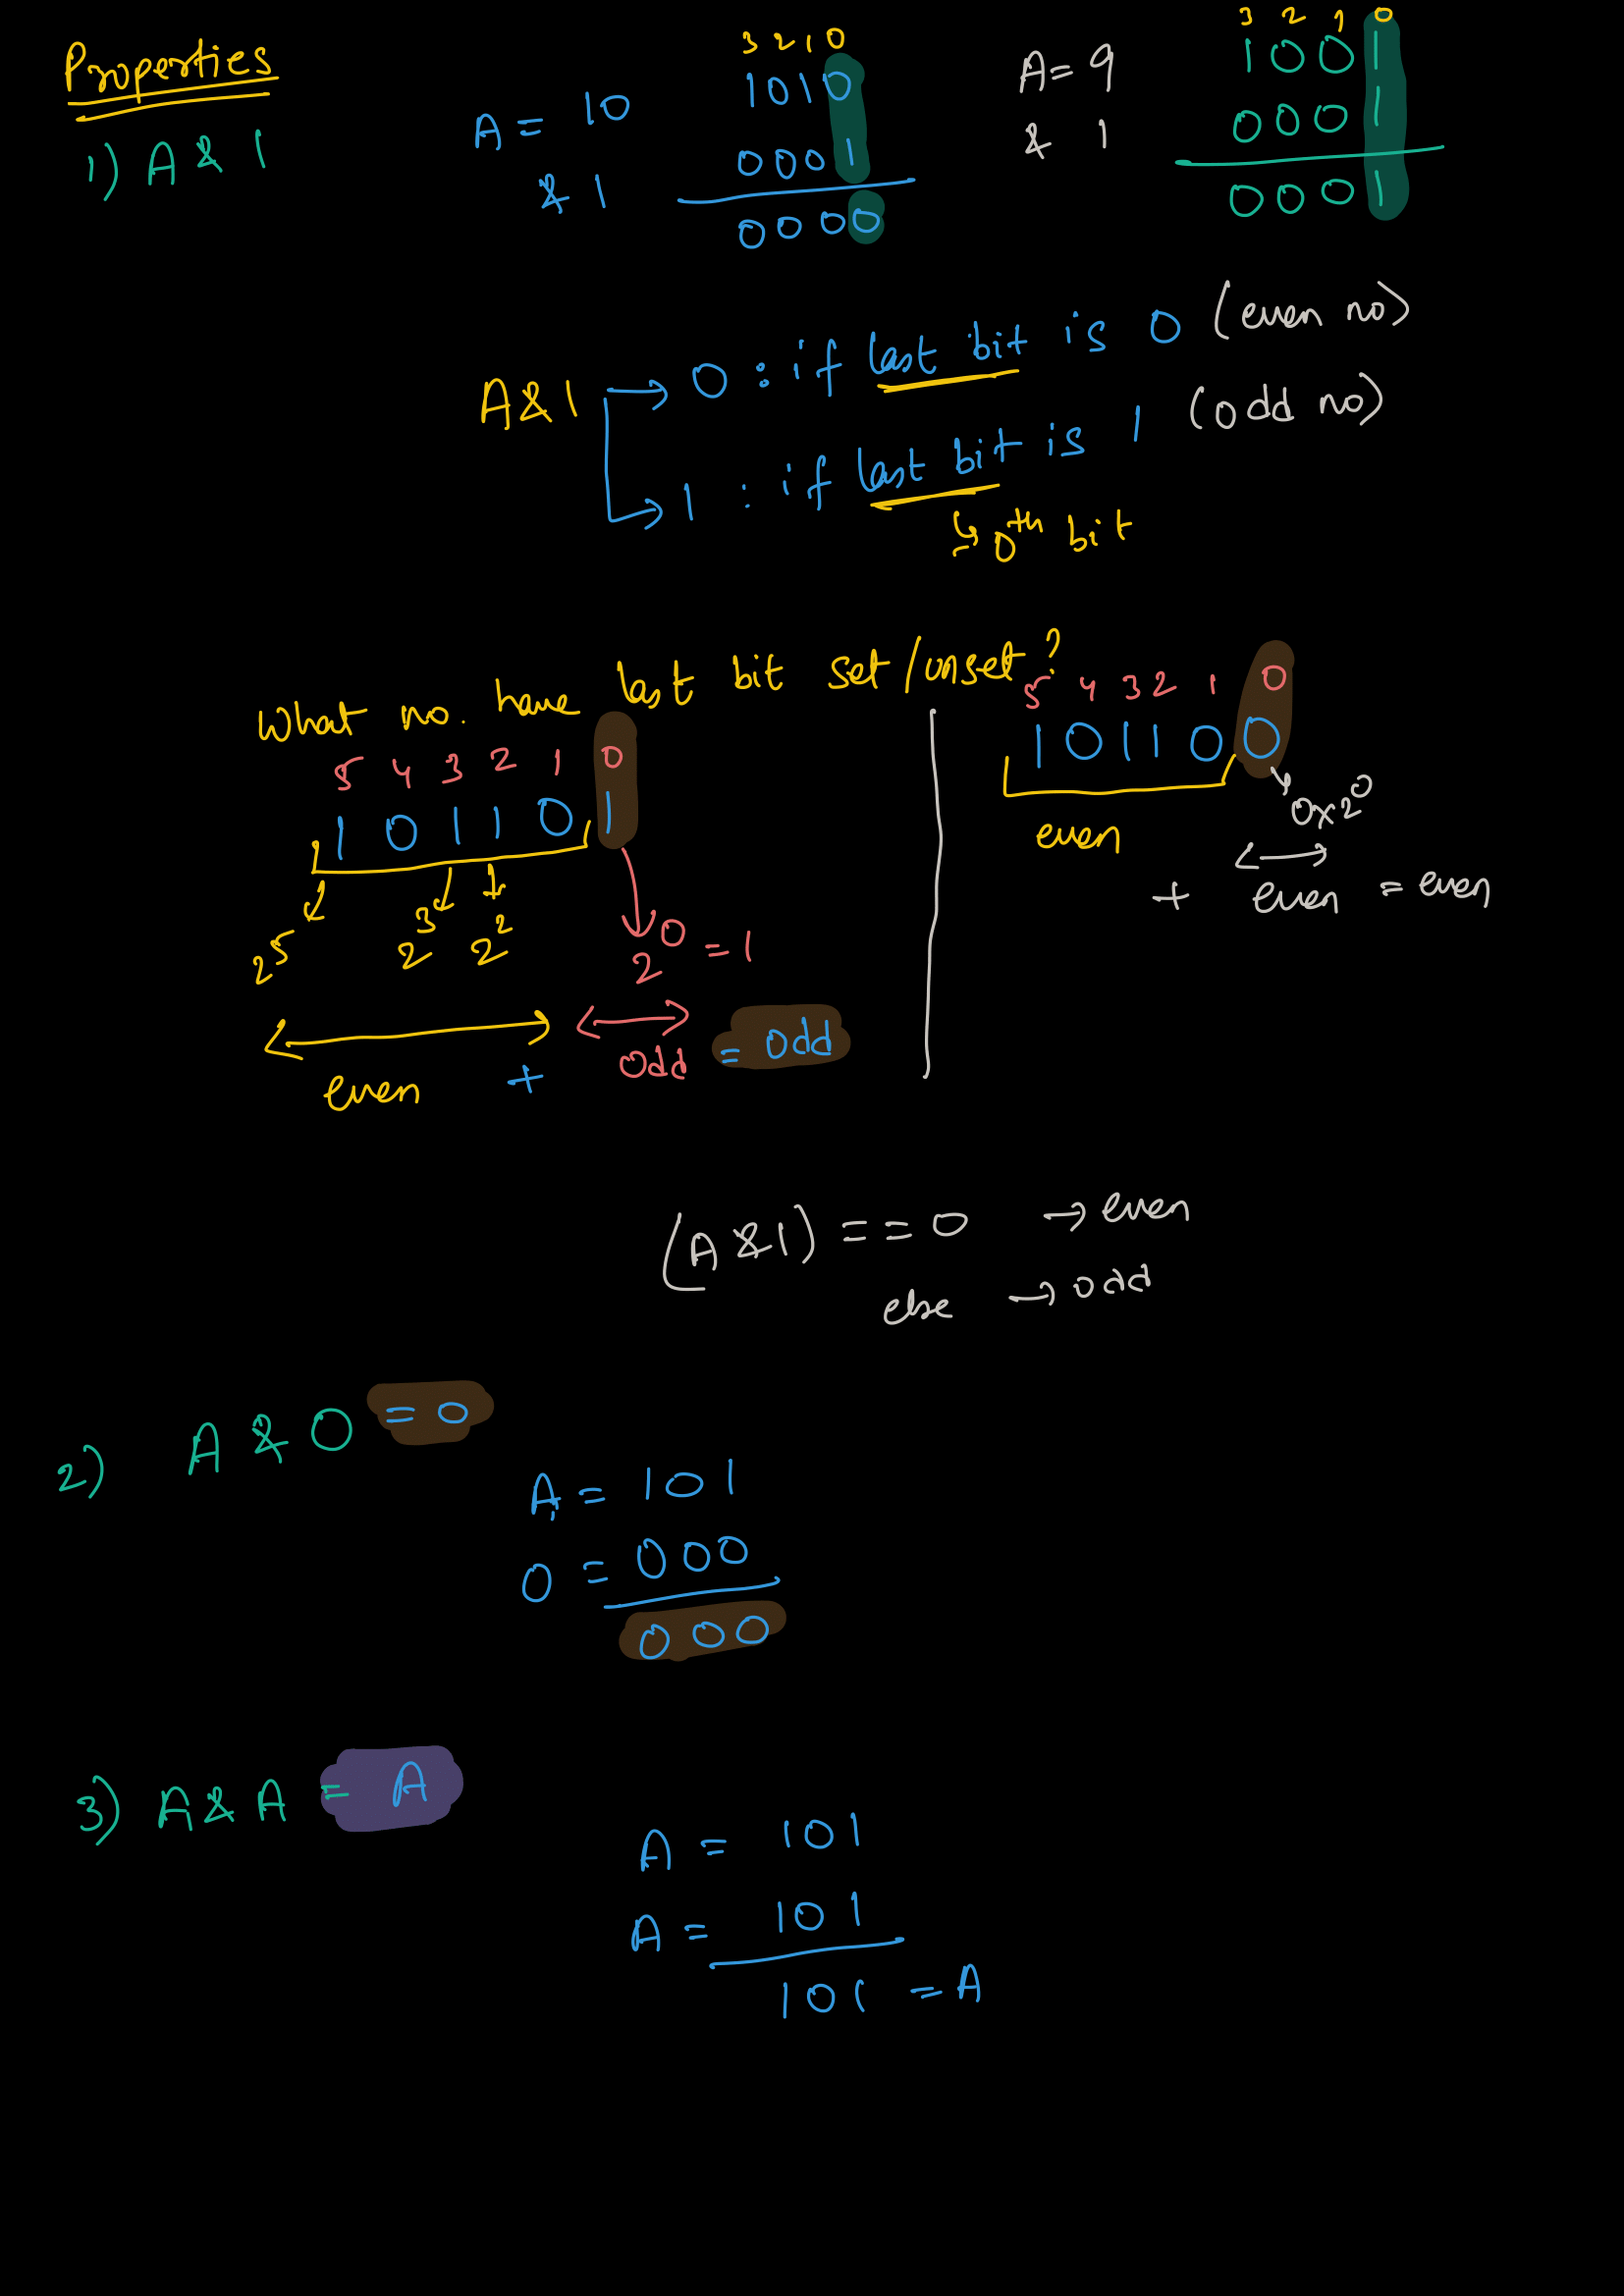 Properties
1) A & 1
A = 10
& 1
3 2 1 0
1 0 1 0
0 0 0 1
0 0 0 0
A = 9
& 1
3 2 1 0
1 0 0 1
0 0 0 1
0 0 0 1
A & 1 → 0 : if last bit is 0 (even no)
→ 1 : if last bit is 1 (odd no)
↳ 0th bit
What no. have last bit set/unset?
5 4 3 2 1 0
1 0 1 1 0 1
2^5 2^3 2^2
2^0 = 1
even + odd = odd
5 4 3 2 1 0
1 0 1 1 0 0
0x2^0
even
+ even = even
(A & 1) == 0 → even
else → odd
2) A & 0 = 0
A = 1 0 1
0 = 0 0 0
0 0 0
3) A & A = A
A = 1 0 1
A = 1 0 1
1 0 1 = A